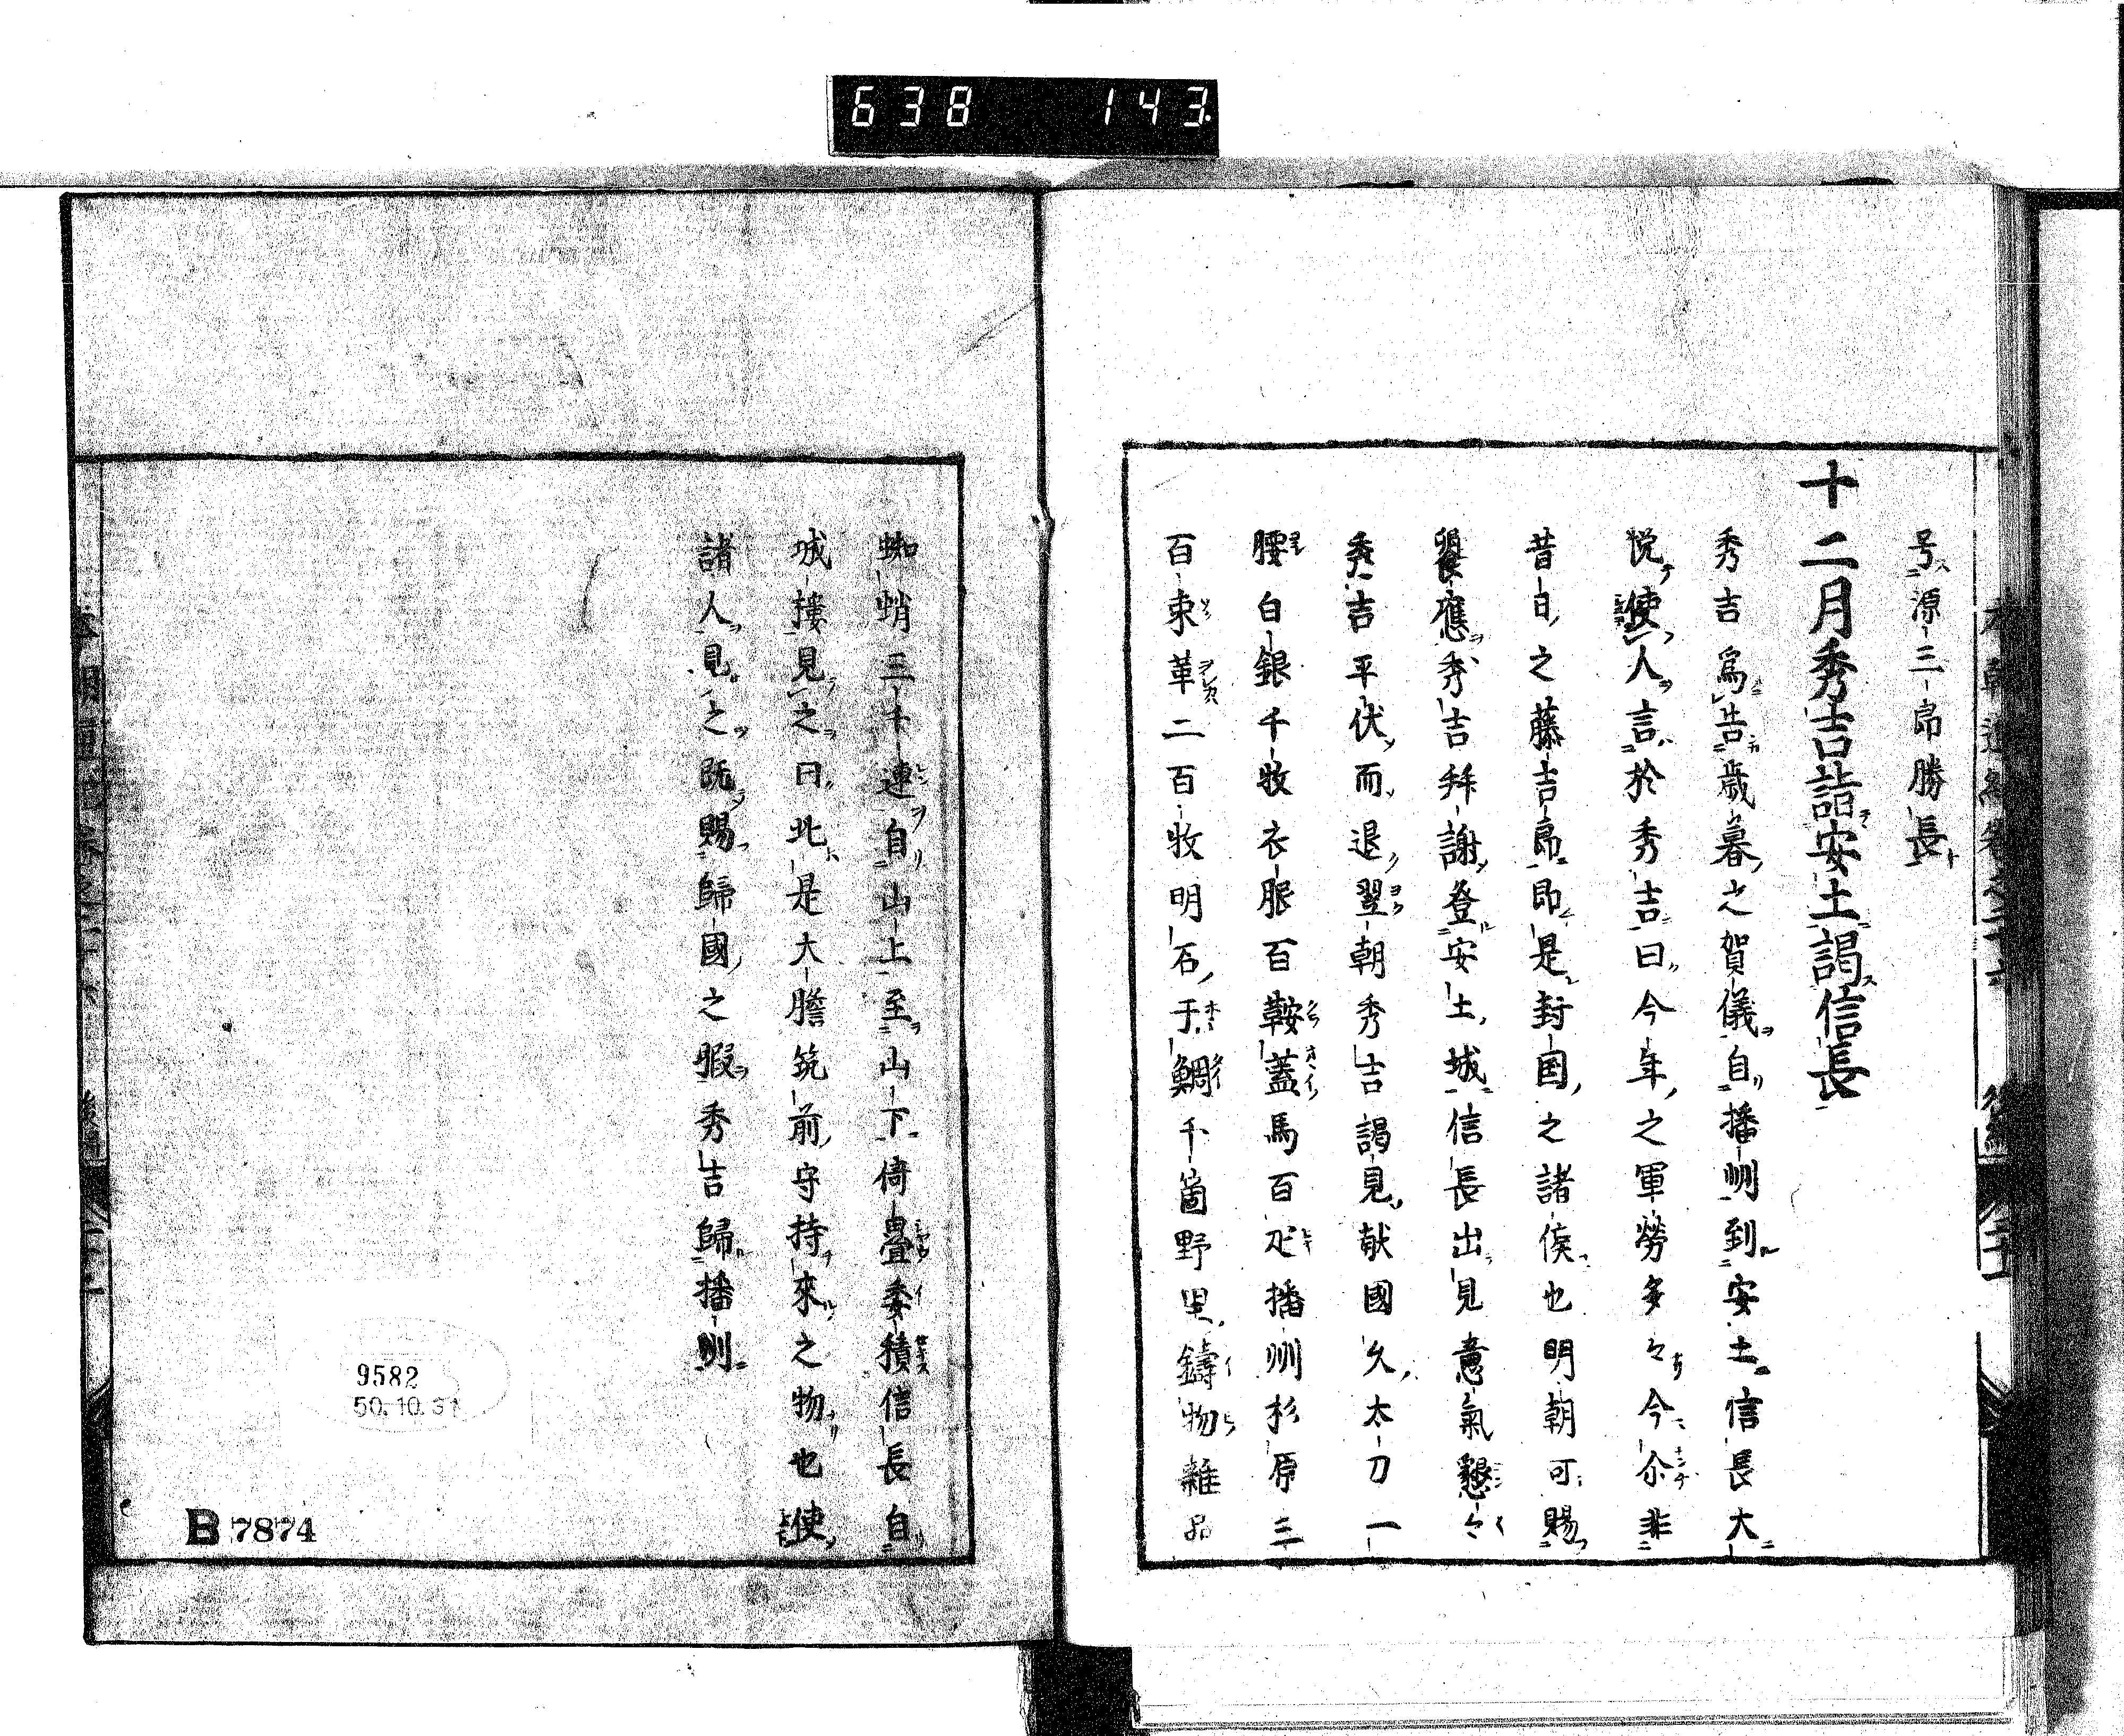 638 143
号源三郎勝長
十二月秀吉詣安土謁信長
秀吉爲告歳暮之賀儀自播州到安土信長大
悦使人言於秀吉曰今年之軍勞多々今尒非
昔日之藤吉郎即是封国之諸侯也明朝可賜
饗應秀吉拜謝登安土城信長出見意氣懇々
秀吉平伏而退翌朝秀吉謁見献國久太刀一
腰白銀千枚衣服百鞍蓋馬百疋播州杉原三
百束革二百枚明石干鯛千箇野里鑄物雜品
蜘蛸三千連自山上至山下倚疊委積信長自
城樓見之曰此是大膽筑前守持來之物也使
諸人見之既賜歸國之暇秀吉歸播州
9582
50.10.31
B 7874